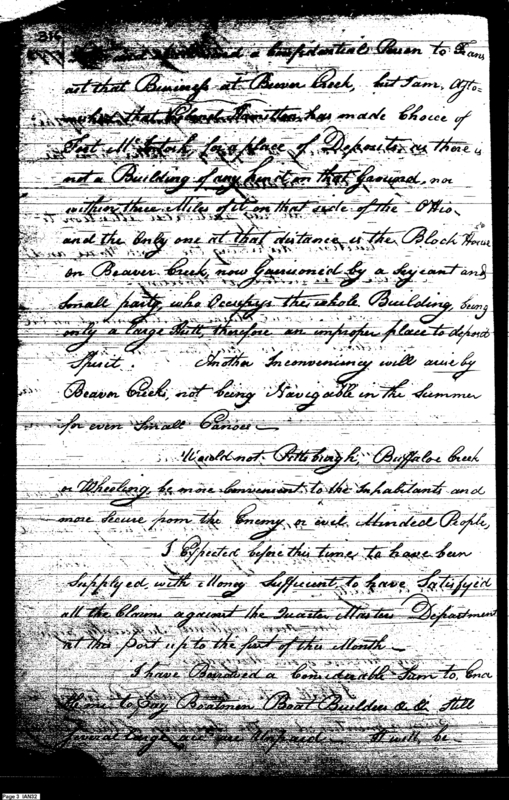 316
a Confidential Person to Trans
act that Business at Beaver Creek, but I am Asto=
nished that Colonel Hamilton has made Choice of
Fort McIntosh, for a place of Deposite, as there is
not a Building of any kind on that Ground, nor
within three Miles of it on that side of the Ohio,
and the Only one at that distance is the Block House
on Beaver Creek, now Garrisoned by a Serjeant and
Small party, who Occupys the whole Building, being
only a large Hutt, therefore an improper place to deposit
Spirit. Another Inconveniency will arise by
Beaver Creek, not being Navigable in the Summer
for even Small Canoes —
Would not Pittsburgh, Buffaloe Creek
or Wheeling, be more Convenient to the Inhabitants and
more Secure from the Enemy, or evil Minded People,
I Expected before this time to have been
Supplyed, with Money Sufficient, to have Satisfyed
all the Claims against the Quarter Masters Department
at this post up to the first of this Month —
I have Borrowed a Considerable Sum to Ena
ble me to pay Boatmen Boat Builders &c &c Still
Several large are Unpaid — It will be
Page 3 IAN32